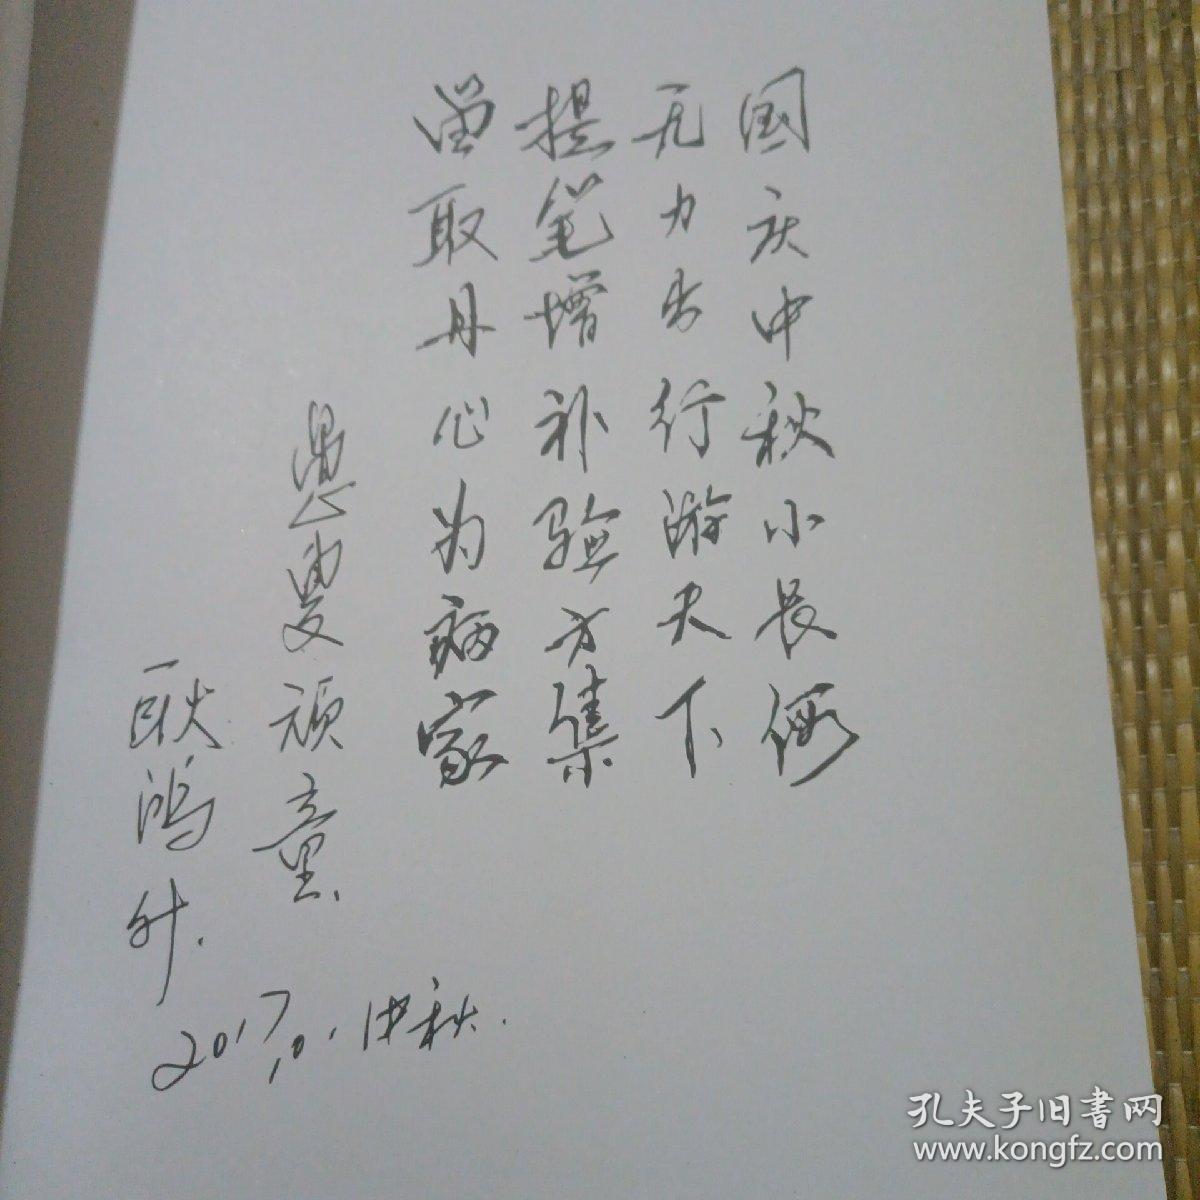 国庆中秋小长假
无力出行游天下
提笔增补验方集
留取丹心为病家
愚叟顽童、
耿鸿升.
2017.10.中秋.
孔夫子旧書网
www.kongfz.com